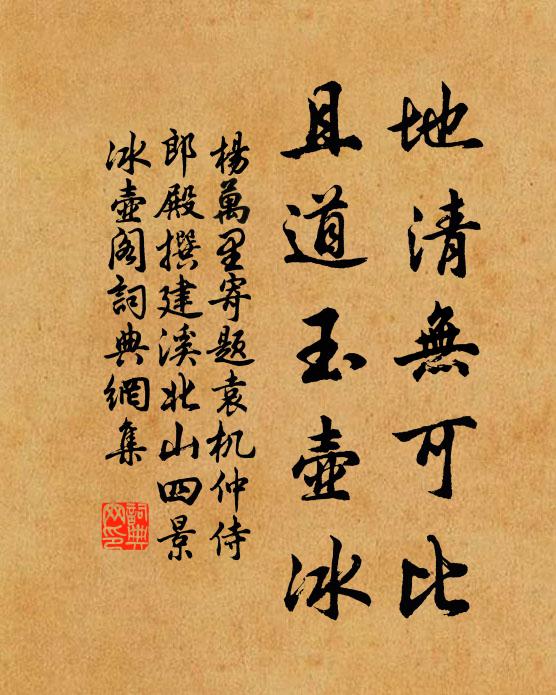 地清無可比
且道玉壺冰
楊萬里寄題袁机仲侍
郎殿撰建溪北山四景
冰壺閣詞典網集
詞典网印